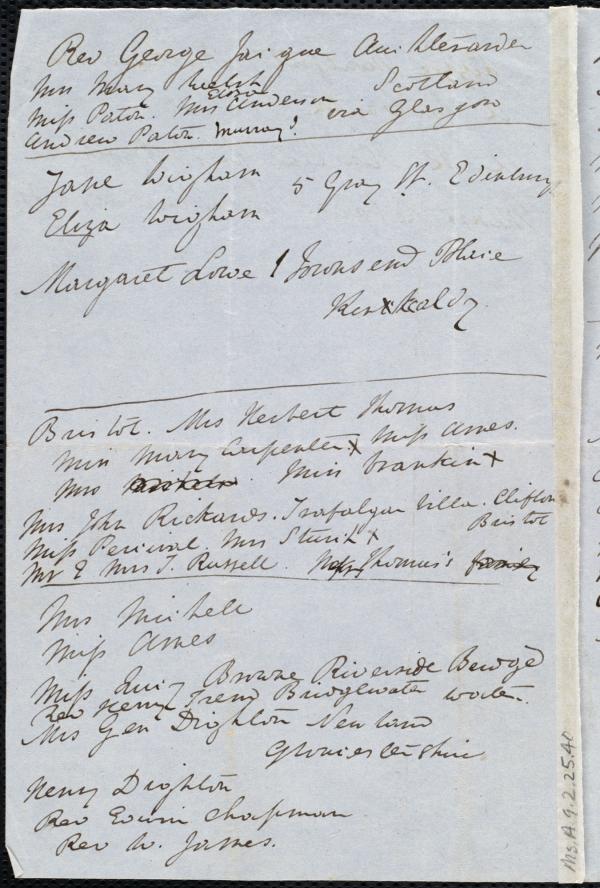 Rev George Jaique Auchterarder
Mrs Mary Welsh Scotland
Miss Paton. Mrs Eliza Anderson via Glasgow
Andrew Paton. Murray?
Jane Wigham 5 Gray St. Edinburg
Eliza Wigham
Margaret Lowe 1 Townsend Place
Kirkcaldy.
Bristol. Mrs Herbert Thomas
Miss Mary Carpenter x Miss Ames.
Mrs Michele. Miss Crankin x
Mrs John Rickards. Trafalgar Villa. Clifton
Bristol
Miss Percival. Mrs Sturch x
Mr & Mrs T. Russell. Thomas's family
Mrs Michell
Miss Ames
Miss Browne Riverside Bewd
Rev Henry Trend Bridgewater
Mrs Gen Dighton Newland
Gloucestershire
Henry Dighton
Rev Edwin Chapman
Rev W. James.
Ms.A.9.2.25.40